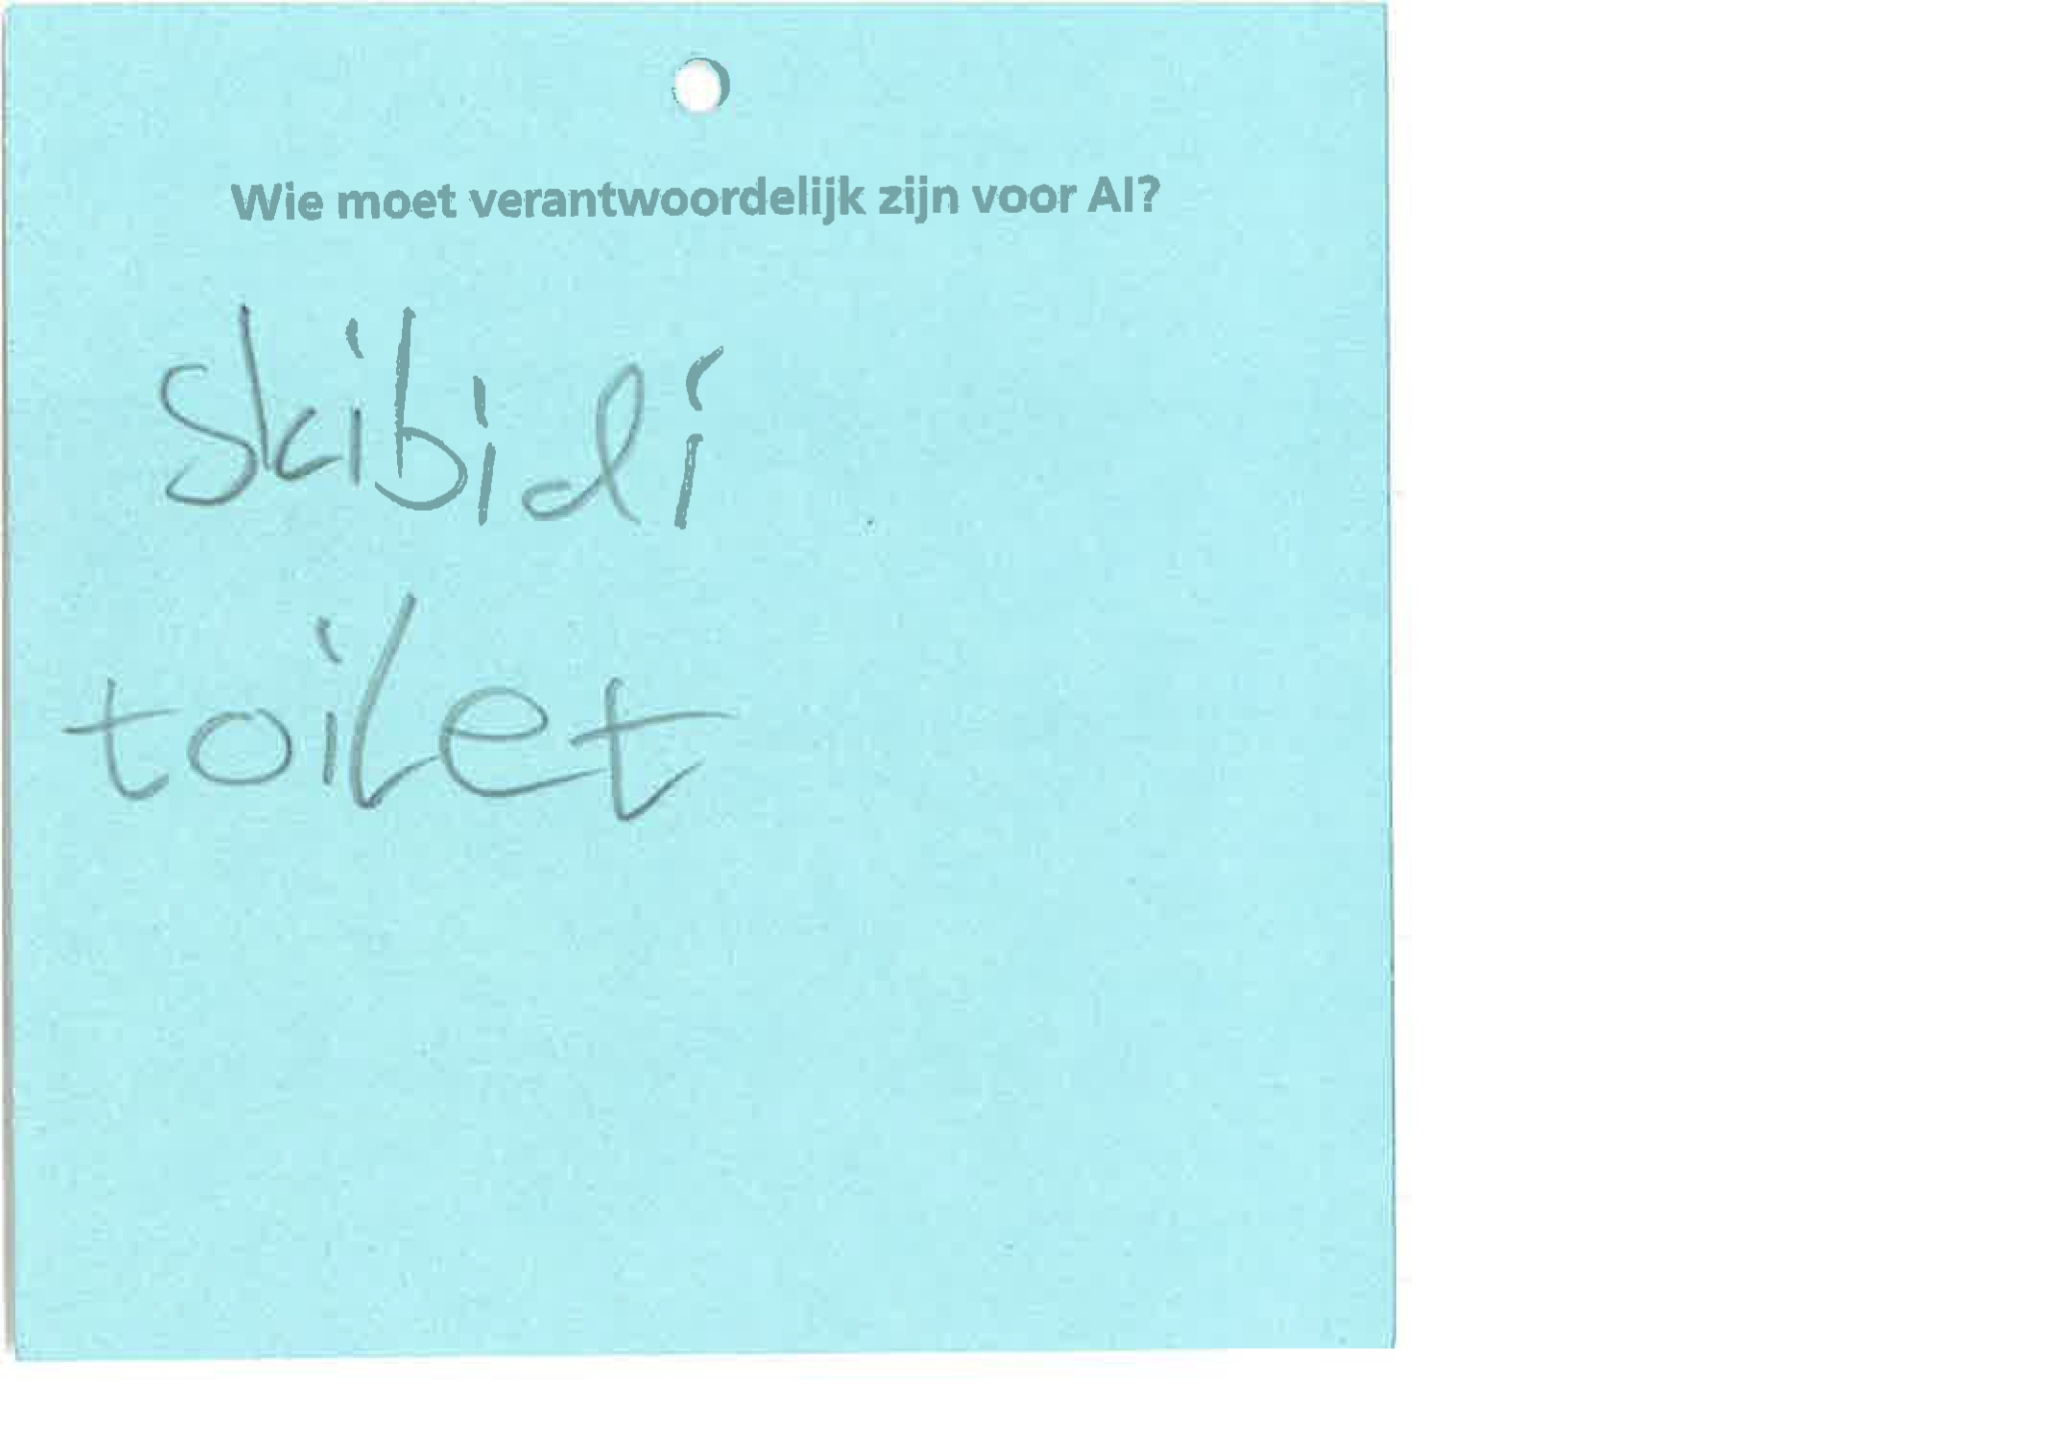 Wie moet verantwoordelijk zijn voor AI?
skibidi
toilet